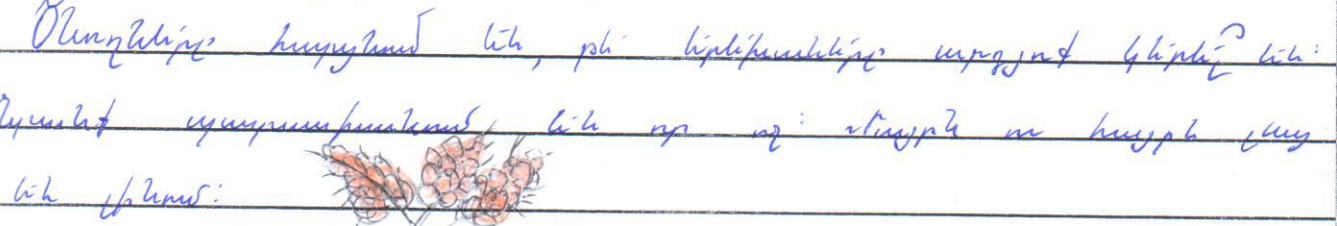 Ծնողները հարցնում են, թե երեխաները արդյոք կերե՞լ են:
Նրանք պատասխանում են որ ոչ: Մայրն ու հայրը լաց
են լինում: